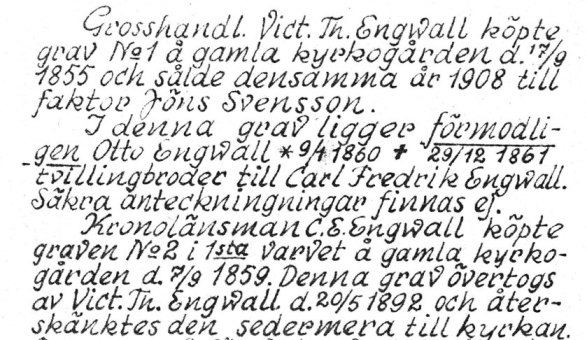 Grosshandl. Vict. Th. Engwall köpte
grav No1 å gamla kyrkogården d. 17/9
1855 och sålde densamma år 1908 till
faktor Jöns Svensson.
I denna grav ligger förmodli-
gen Otto Engwall * 9/4 1860 + 29/12 1861
tvillingbroder till Carl Fredrik Engwall.
Säkra anteckningningar finnas ej.
Kronolänsman C.E. Engwall köpte
graven No2 i 1sta varvet å gamla kyrko-
gården d. 7/9 1859. Denna grav övertogs
av Vict. Th. Engwall d. 29/5 1892 och åter-
skänktes den sedermera till kyrkan.